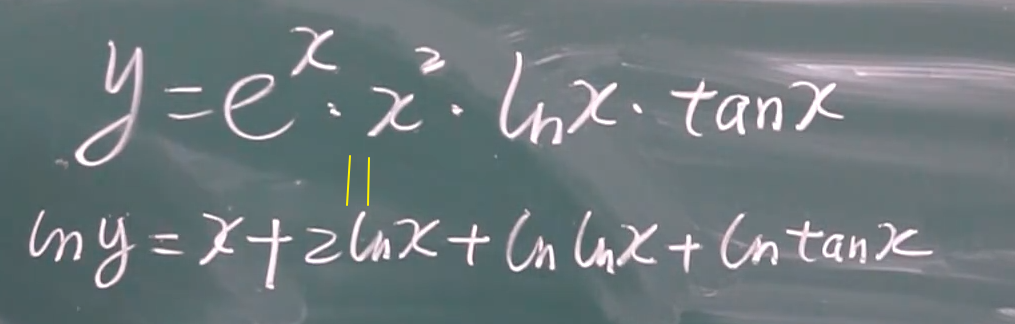 y=eˣ·x²·lnx·tanx
ln y=x+2lnx+ln lnx+ln tanx